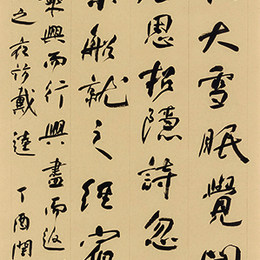 大雪眠覺開
思招隱詩忽
船就之經宿
乘興而行興盡而返
之夜訪戴逵 丁酉閏